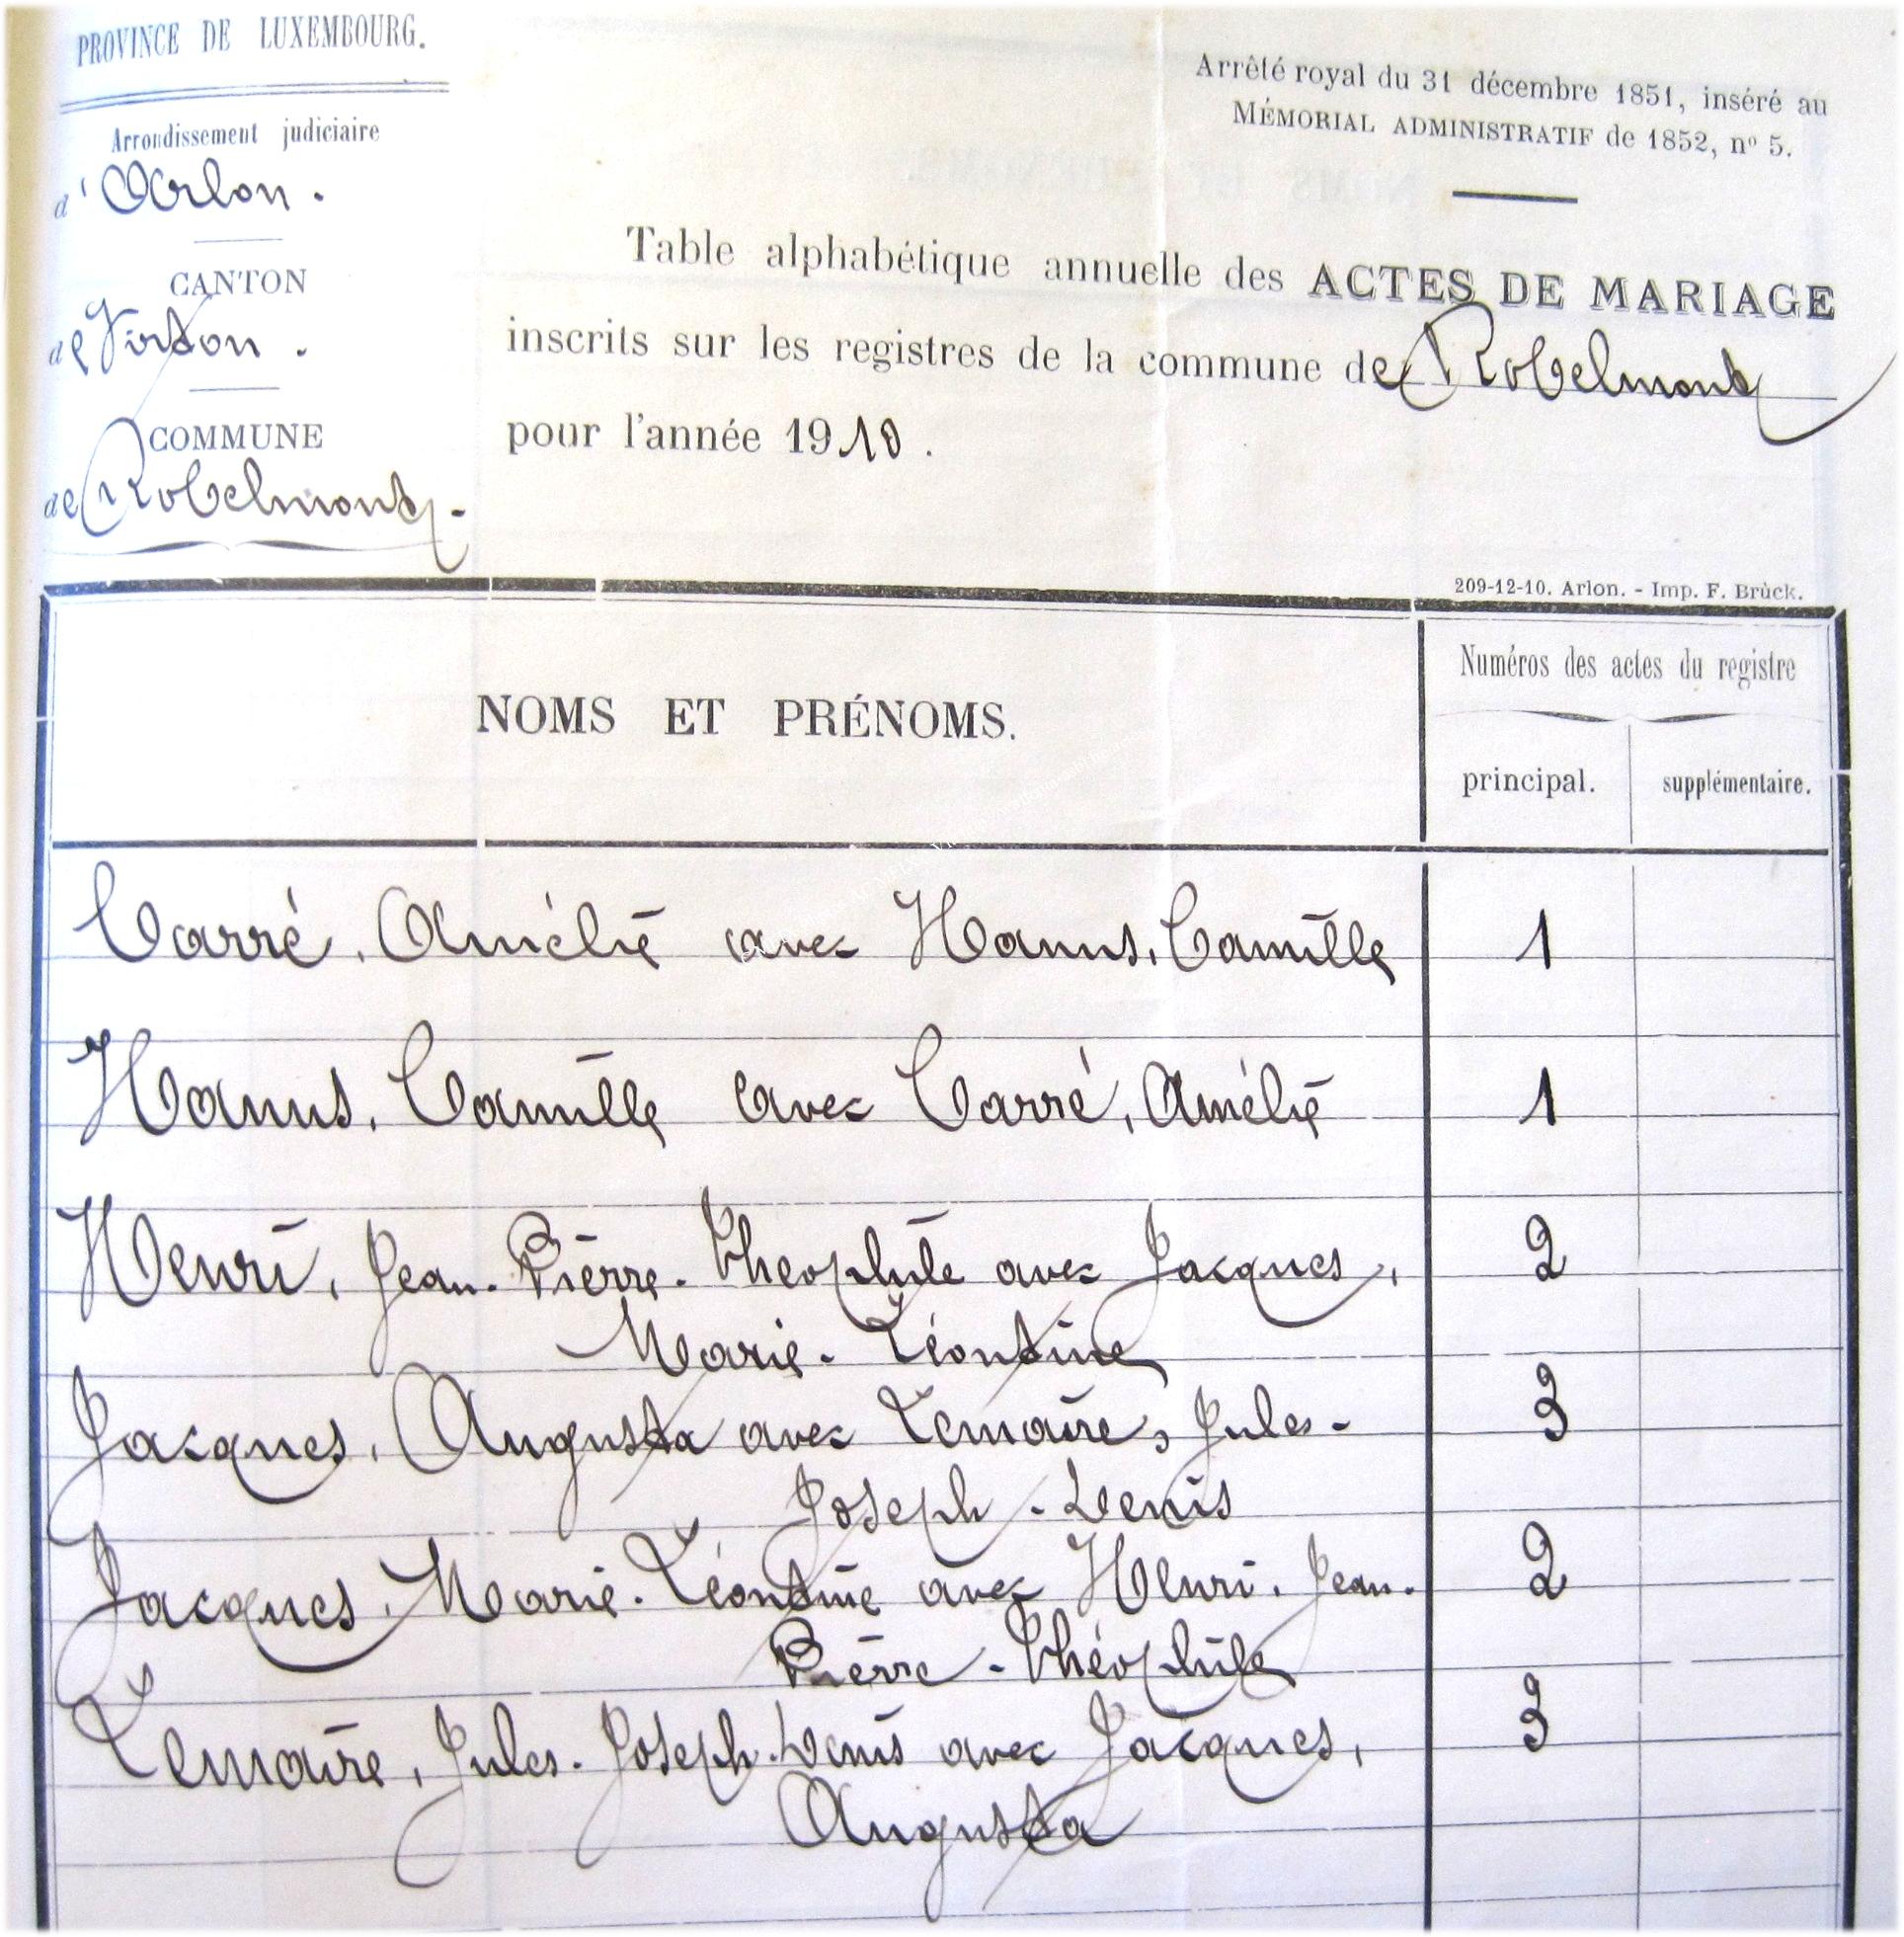 PROVINCE DE LUXEMBOURG.
Arrondissement judiciaire
d'Arlon.
CANTON
de Virton.
COMMUNE
de Robelmont.
Arrêté royal du 31 décembre 1851, inséré au
MÉMORIAL ADMINISTRATIF de 1852, nº 5.
Table alphabétique annuelle des ACTES DE MARIAGE
inscrits sur les registres de la commune de Robelmont
pour l'année 1910.
209-12-10. Arlon. - Imp. F. Brück.
NOMS ET PRÉNOMS.
Numéros des actes du registre
principal. supplémentaire.
Carré, Amélie avec Hanus, Camille 1
Hanus, Camille avec Carré, Amélie 1
Henri, Jean-Pierre-Théophile avec Jacques, 2
Marie-Léontine
Jacques, Augusta avec Lemaire, Jules- 3
Joseph-Denis
Jacques, Marie-Léontine avec Henri, Jean- 2
Pierre-Théophile
Lemaire, Jules-Joseph-Denis avec Jacques, 3
Augusta